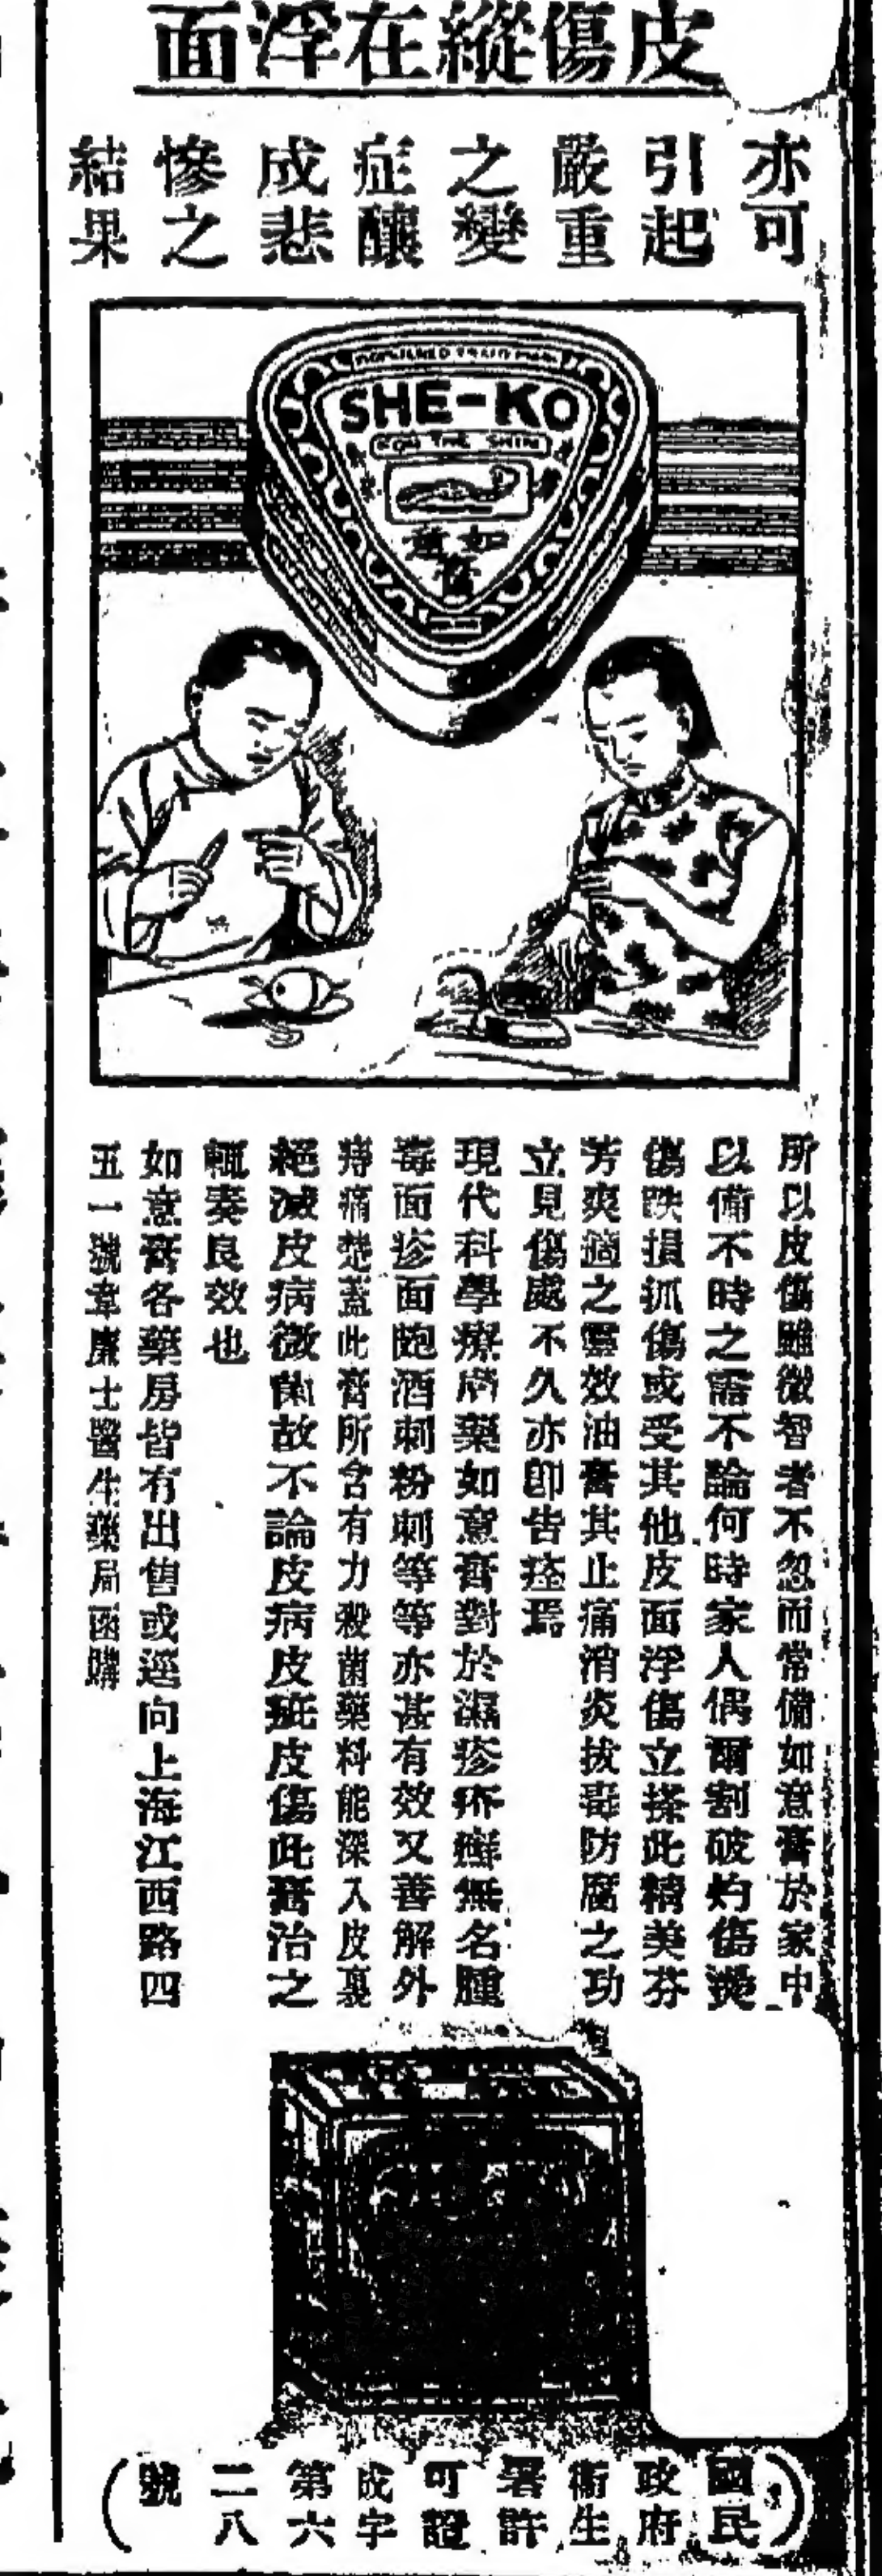 皮傷縱在浮面
亦可引起嚴重之變症釀成悲慘之結果
SHE-KO
FOR THE SKIN
如意膏
所以皮傷雖微智者不忽而常備如意膏於家中
以備不時之需不論何時家人偶爾割破灼傷燙
傷跌損抓傷或受其他皮面浮傷立搽此精美芬
芳爽適之靈效油膏其止痛消炎拔毒防腐之功
立見傷處不久亦卽告痊焉
現代科學療膚藥如意膏對於濕疹疥癬無名腫
毒面疹面皰酒刺粉刺等等亦甚有效又善解外
痔痛楚蓋此膏所含有力殺菌藥料能深入皮裏
絕滅皮病微菌故不論皮病皮疵皮傷此膏治之
輒奏良效也
如意膏各藥房皆有出售或逕向上海江西路四
五一號韋廉士醫生藥局函購
(國民政府衛生署許可證成字第六二八號)